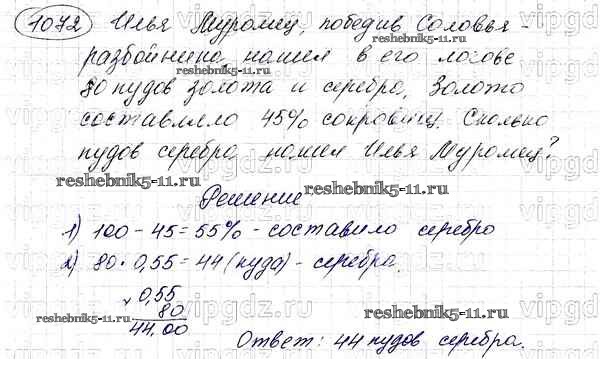 1072 Илья Муромец, победив Соловья-
разбойника, нашел в его логове
80 пудов золота и серебра. Золото
составляло 45% сокровищ. Сколько
пудов серебра нашел Илья Муромец?
reshebnik5-11.ru
reshebnik5-11.ru
reshebnik5-11.ru
Решение
1) 100 - 45 = 55% - составило серебро
2) 80 · 0,55 = 44 (пуда) - серебра.
× 0,55
80
44,00
reshebnik5-11.ru
reshebnik5-11.ru
Ответ: 44 пудов серебра.